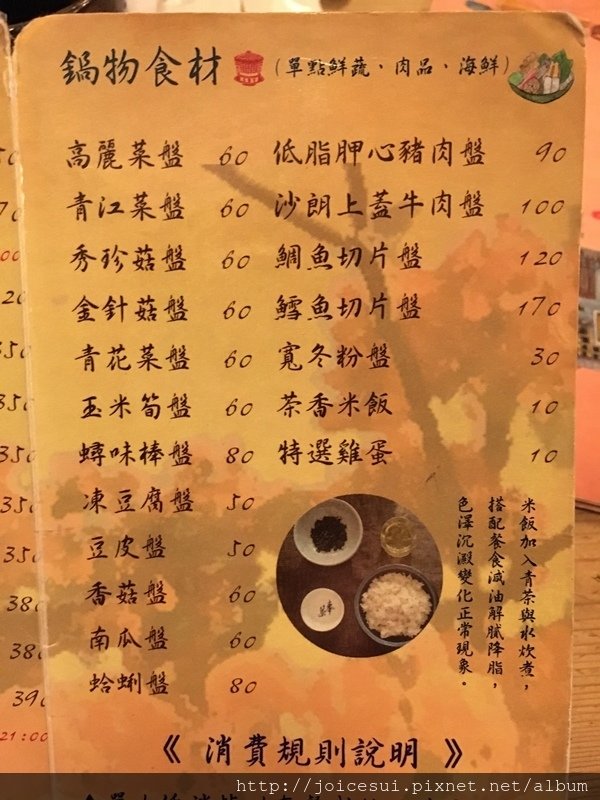 鍋物食材 (單點鮮蔬、肉品、海鮮)
高麗菜盤 60
青江菜盤 60
秀珍菇盤 60
金針菇盤 60
青花菜盤 60
玉米筍盤 60
蟳味棒盤 80
凍豆腐盤 50
豆皮盤 50
香菇盤 60
南瓜盤 60
蛤蜊盤 80
低脂胛心豬肉盤 90
沙朗上蓋牛肉盤 100
鯛魚切片盤 120
鱈魚切片盤 170
寬冬粉盤 30
茶香米飯 10
特選雞蛋 10
米飯加入青茶與水炊煮，
搭配餐食減油解膩降脂，
色澤沉澱變化正常現象。
《 消費規則說明 》
350
350
350
350
380
380
390
21:00
http://joicesui.pixnet.net/album